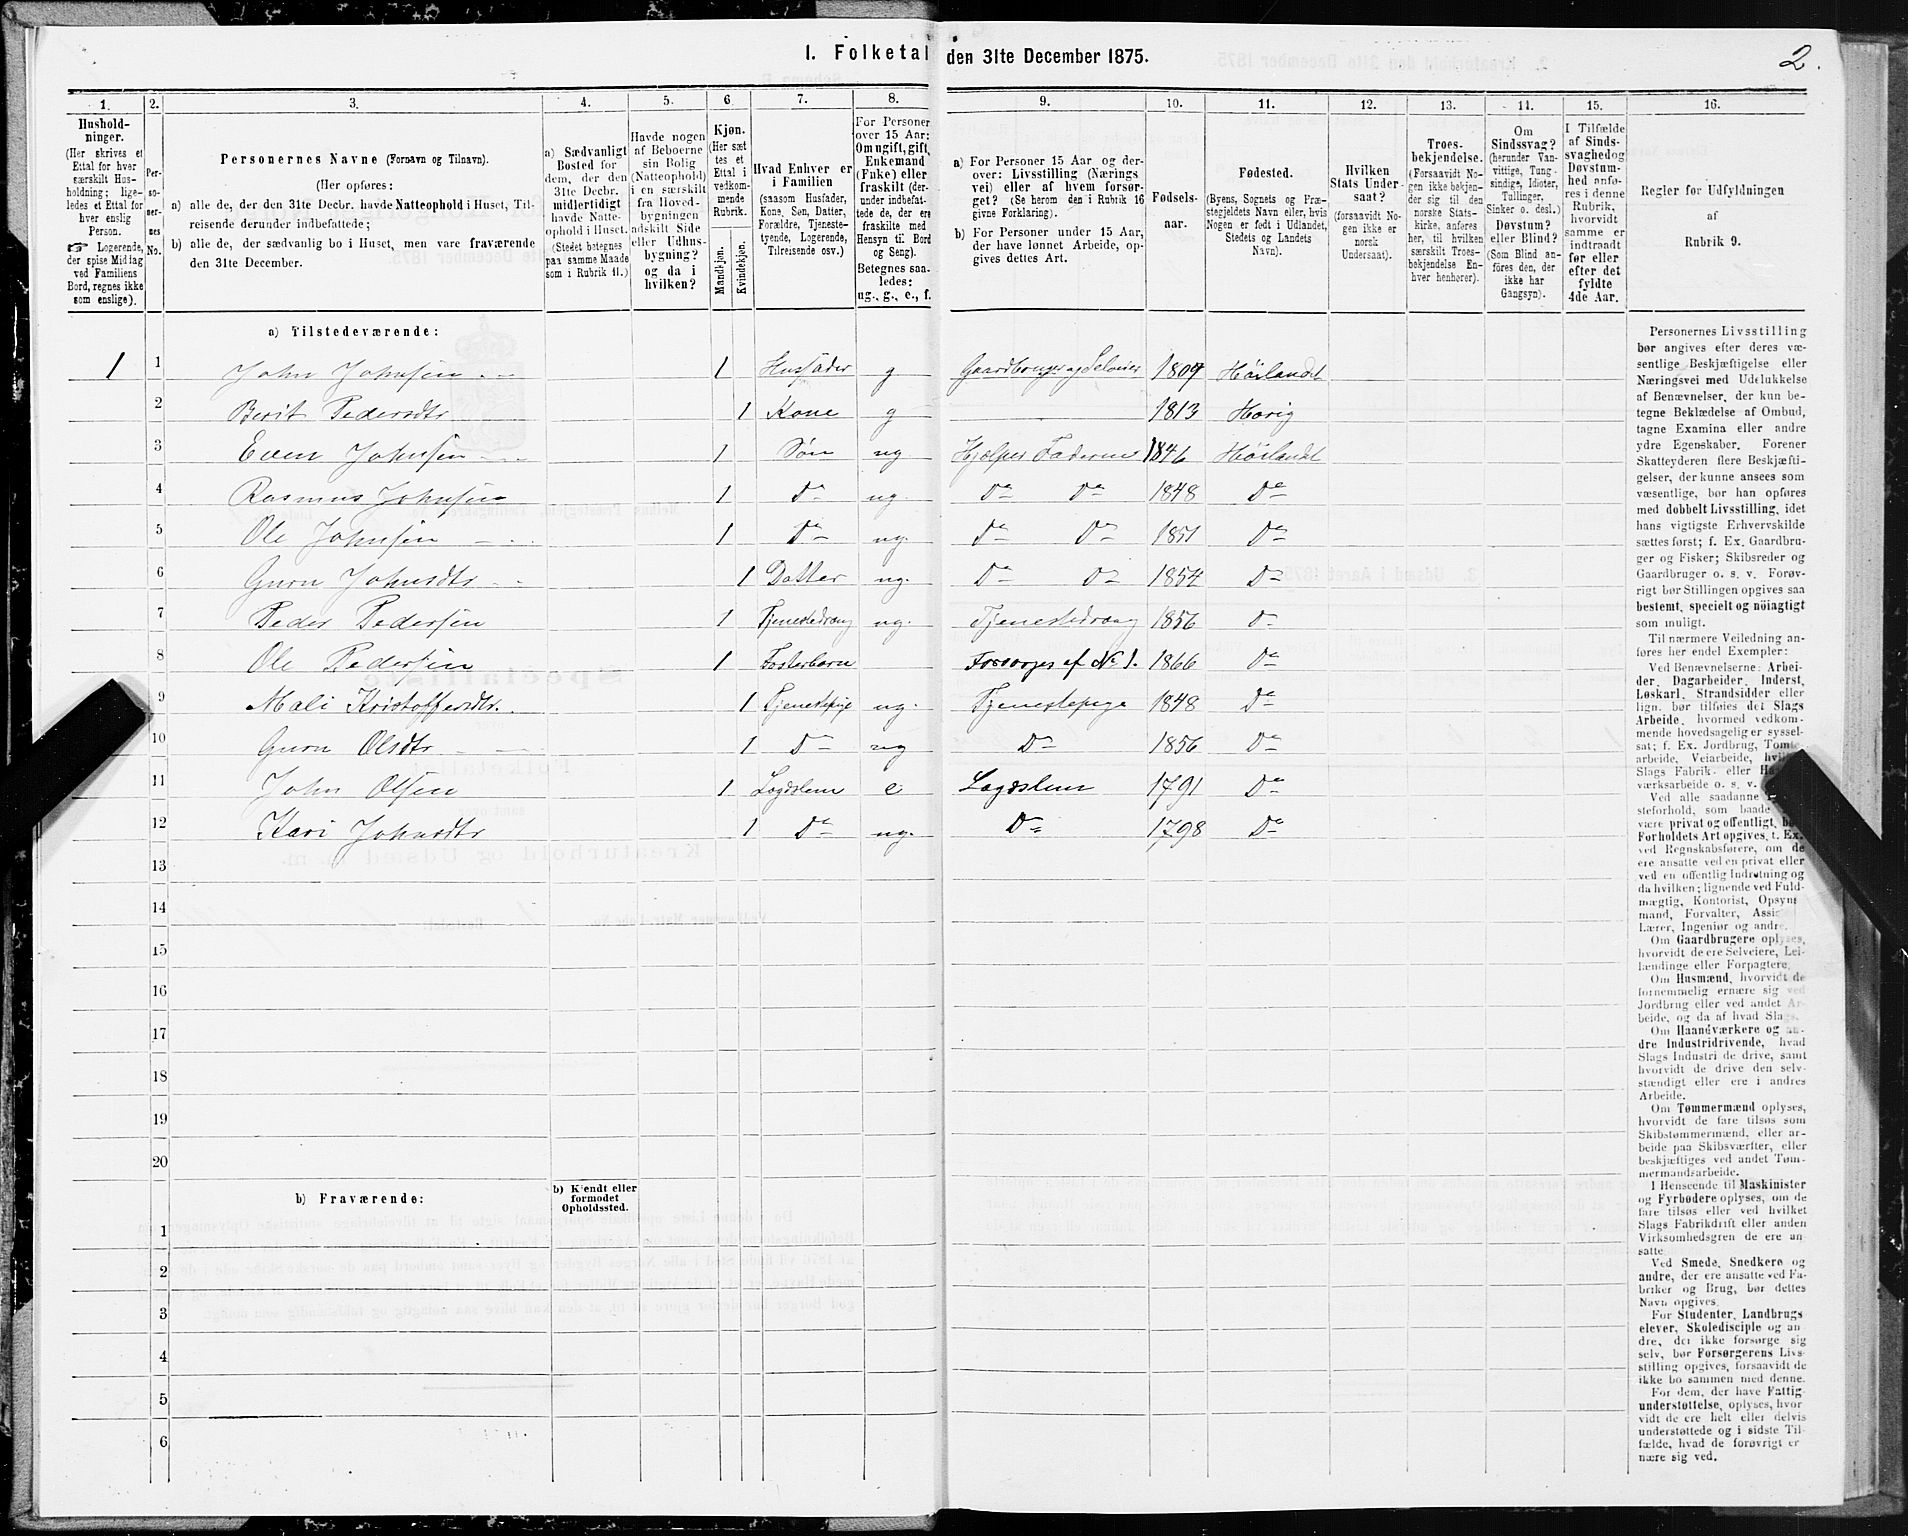 2.
I. Folketal den 31te December 1875.
1. 2. 3. 4. 5. 6 7. 8. 9. 10. 11. 12. 13. 14. 15. 16.
Hushold-
ninger.
(Her skrives et
Ettal for hver
særskilt Hus-
holdning; lige-
ledes et Ettal for
hver enslig
Person.
☞ Logerende,
der spise Middag
ved Familiens
Bord, regnes ikke
som enslige).
Per-
so-
ner-
nes
No.
Personernes Navne (Fornavn og Tilnavn).
(Her opføres:
a) alle de, der den 31te Decbr. havde Natteophold i Huset, Til-
reisende derunder indbefattede;
b) alle de, der sædvanlig bo i Huset, men vare fraværende
den 31te December.
a) Sædvanligt
Bosted for
dem, der den
31te Decbr.
midlertidigt
havde Natte-
ophold i Huset.
(Stedet betegnes
paa samme Maade
som i Rubrik 11.)
Havde nogen
af Beboerne
sin Bolig
(Natteophold)
i en særskilt
fra Hoved-
bygningen
adskilt Side
eller Udhus-
bygning?
og da i
hvilken?
Kjøn.
(Her sæt
tes et
Ettal i
vedkom-
mende
Rubrik.
Mandkjøn.
Kvindekjøn.
Hvad Enhver er
i Familien
(saasom Husfader,
Kone, Søn, Datter,
Forældre, Tjeneste-
tyende, Logerende,
Tilreisende osv.)
For Personer
over 15 Aar:
Om ugift, gift,
Enkemand
(Enke) eller
fraskilt (der-
under indbefat-
tede de, der ere
fraskilte med
Hensyn til Bord
og Seng).
Betegnes saa-
ledes:
ug., g., e., f.
a) For Personer 15 Aar og der-
over: Livsstilling (Nærings
vei) eller af hvem forsør-
get? (Se herom den i Rubrik 16
givne Forklaring).
b) For Personer under 15 Aar,
der have lønnet Arbeide, op-
gives dettes Art.
Fødsels-
aar.
Fødested.
(Byens, Sognets og Præ-
stegjeldets Navn eller, hvis
Nogen er født i Udlandet,
Stedets og Landets
Navn).
Hvilken
Stats Under-
saat?
(forsaavidt No-
gen ikke er
norsk
Undersaat).
Troes-
bekjendelse.
(Forsaavidt No-
gen ikke bekjen-
der sig til den
norske Stats-
kirke, anføres
her, til hvilken
særskilt Troes-
bekjendelse En-
hver henhører).
Om
Sindssvag?
(herunder Van-
vittige, Tung-
sindige, Idioter,
Tullinger,
Sinker o. desl.)
Døvstum?
eller Blind?
(Som Blind an-
føres den, der
ikke har
Gangsyn).
I Tilfælde
af Sinds-
svaghed og
Døvstum-
hed anfø-
res i denne
Rubrik,
hvorvidt
samme er
indtraadt
før eller
efter det
fyldte
4de Aar.
Regler for Udfyldningen
af
Rubrik 9.
a) Tilstedeværende:
1 1 John Johnsen 1 Husfader g Gaardbruger og Selveier 1809 Höilandet
2 Berit Pedersdtr 1 Kone g 1813 Horig
3 Even Johnsen 1 Søn ug. Hjælper Faderen 1846 Höilandt
4 Rasmus Johnsen 1 Do ug. Do Do 1848 Do
5 Ole Johnsen 1 Do ug. Do Do 1851 Do
6 Guru Johnsdtr 1 Datter ug. Do Do 1854 Do
7 Peder Pedersen 1 Tjenestedreng ug. Tjenestedreng 1856 Do
8 Ole Pedersen 1 Fosterbarn Forsorges af No 1. 1866 Do
9 Mali Kristoffersdtr. 1 Tjenestepige ug. Tjenestepige 1848 Do
10 Guru Olsdtr 1 Do ug Do 1856 Do
11 John Olsen 1 Lægdslem e Lægdslem 1791 Do
12 Kari Johnsdtr 1 Do ug. Do 1798 Do
13
14
15
16
17
18
19
20
b) Fraværende:
b) Kjendt eller
formodet
Opholdssted.
1
2
3
4
5
6
Personernes Livsstilling
bør angives efter deres væ-
sentlige Beskjæftigelse eller
Næringsvei med Udelukkelse
af Benævnelser, der kun be-
tegne Beklædelse af Ombud,
tagne Examina eller andre
ydre Egenskaber. Forener
Skatteyderen flere Beskjæfti-
gelser, der kunne ansees som
væsentlige, bør han opføres
med dobbelt Livsstilling, idet
hans vigtigste Erhvervskilde
sættes først; f. Ex. Gaardbru-
ger og Fisker; Skibsreder og
Gaardbruger o. s. v. Forøv-
rigt bør Stillingen opgives saa
bestemt, specielt og nöiagtigt
som muligt.
Til nærmere Veiledning an-
føres her endel Exempler:
Ved Benævnelserne: Arbei-
der, Dagarbeider, Inderst,
Løskarl, Strandsidder eller
lign. bør tilføies det Slags
Arbeide, hvormed vedkom-
mende hovedsagelig er syssel-
sat; f. Ex. Jordbrug, Tomte-
arbeide, Veiarbeide, hvilket
Slags Fabrik- eller
værksarbeide o. s. v.
Ved alle saadanne
steforhold, som baade
være privat og offentligt, bør
Forholdets Art opgives, t. Ex.
ved Regnskabsførere, om de
ere ansatte ved en privat eller
ved en offentlig Indretning og
da hvilken; lignende ved Fuld-
mægtig, Kontorist, Opsyns
mand, Forvalter, Assi
Lærer, Ingeniør og andre.
Om Gaardbrugere oplyses,
hvorvidt de ere Selveiere, Lei-
lændinge eller Forpagtere.
Om Husmænd, hvorvidt de
fornemmelig ernære sig ved
Jordbrug eller ved andet Ar-
beide, og da af hvad Slags.
Om Haandværkere og an-
dre Industridrivende, hvad
Slags Industri de drive, samt
hvorvidt de drive den selv-
stændigt eller ere i andres
Arbeide.
Om Tømmermænd oplyses,
hvorvidt de fare tilsøs som
Skibstømmermænd, eller ar-
beide paa Skibsværfter, eller
beskjæftiges ved andet Tøm-
mermandsarbeide.
I Henseende til Maskinister
og Fyrbødere oplyses, om de
fare tilsøs eller ved hvilket
Slags Fabrikdrift eller anden
Virksomhedsgren de ere an-
satte
Ved Smede, Snedkere og
andre, der ere ansatte ved Fa-
briker og Brug, bør dettes
Navn opgives.
For Studenter, Landbrugs
elever, Skoledisciple og an-
dre, der ikke forsørge sig
selv, bør Forsørgerens Livs-
stilling opgives, forsaavidt de
ikke bo sammen med denne.
For dem, der have Fattig-
understøttelse, oplyses, hvor
vidt de ere helt eller delvis
understøttede og i sidste Til-
fælde, hvad de forøvrigt er
nære sig ved.